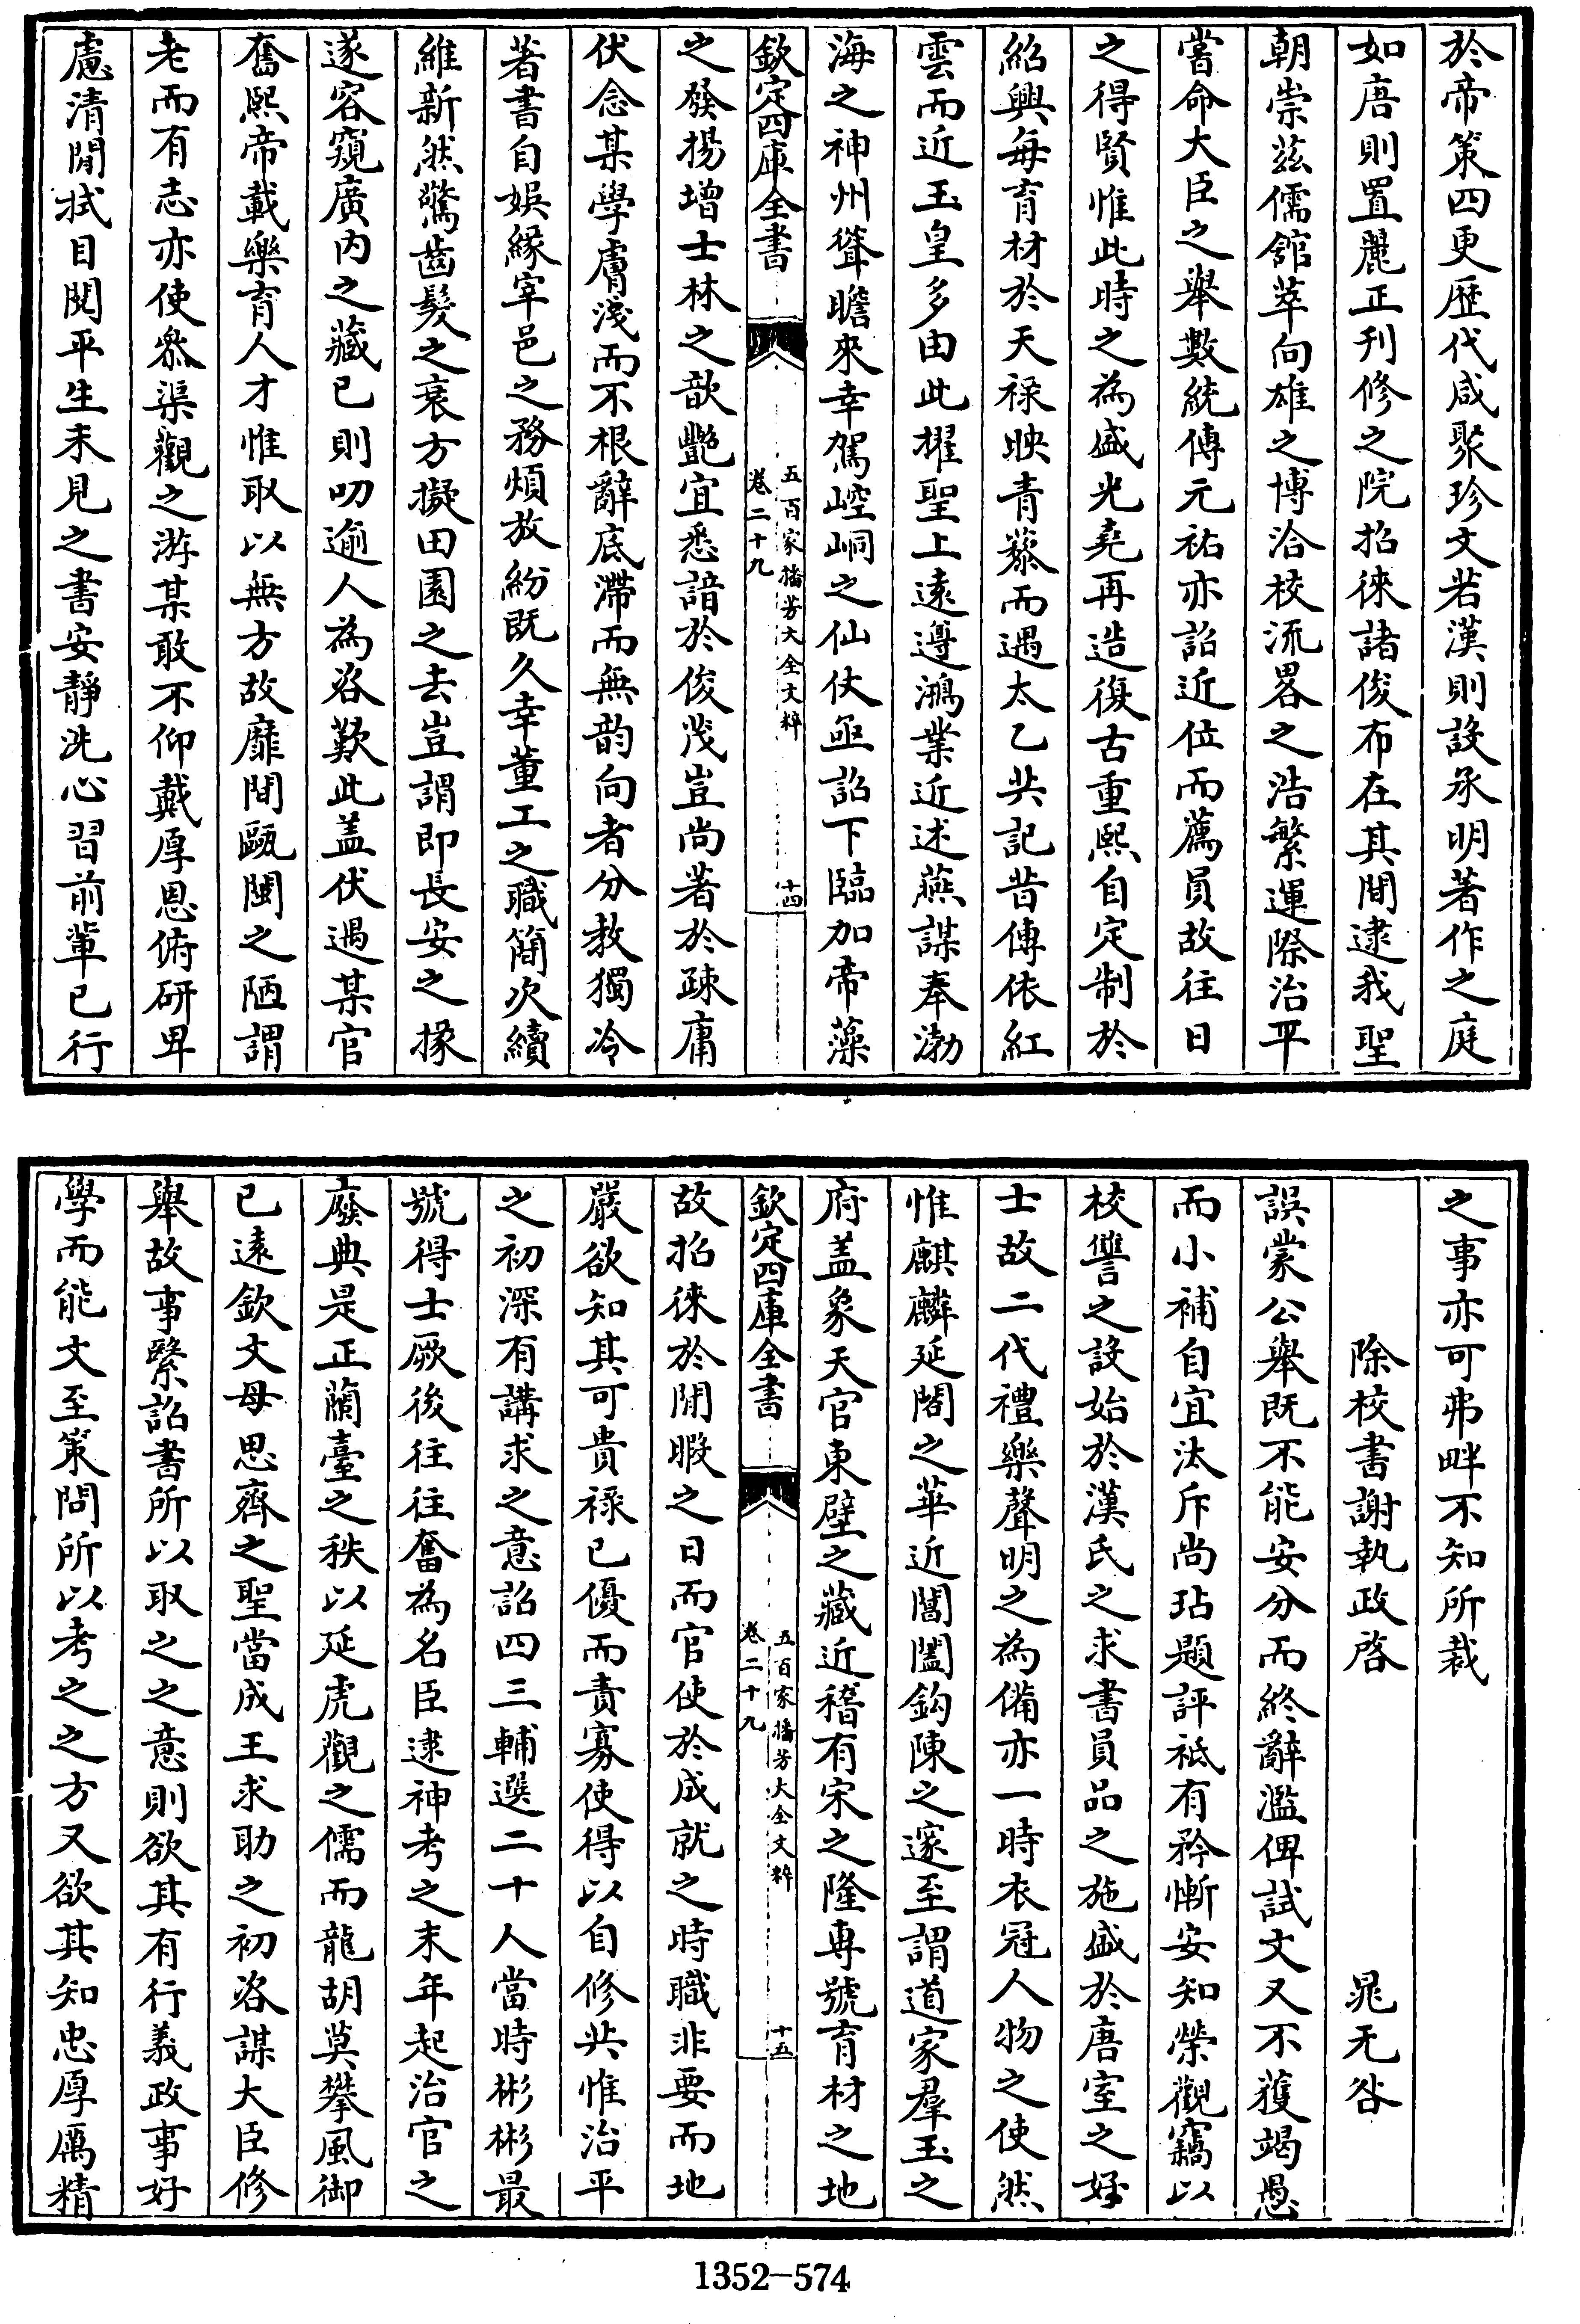 於帝策四更歴代咸聚珍文若漢則設承明著作之庭
如唐則置麗正刋修之院招徠諸俊布在其間逮我聖
朝崇兹儒舘萃向雄之博洽校流畧之浩繁運際治平
嘗命大臣之舉數統傳元祐亦詔近位而薦員故往日
之得賢惟此時之為盛光堯再造復古重熙自定制於
紹興每育材於天禄映青藜而遇太乙共記昔傳依紅
雲而近玉皇多由此擢聖上逺遵鴻業近述燕謀奉渤
海之神州聳瞻來幸駕崆峒之仙仗亟詔下臨加帝藻
欽定四庫全書
五百家播芳大全文粹
卷二十九
十四
之發揚增士林之歆艷宜悉諳於俊茂豈尚著於疎庸
伏念某學膚淺而不根辭底滯而無韵向者分教獨冷
著書自娯縁宰邑之務煩放紛既久幸董工之職簡次續
維新然驚齒髪之衰方擬田園之去豈謂即長安之掾
遂容窺廣内之藏已則叨逾人為咨歎此盖伏遇某官
奮熙帝載樂育人才惟取以無方故靡間甌閩之陋謂
老而有志亦使叅渠觀之游某敢不仰戴厚恩俯研卑
慮清閒拭目閱平生未見之書安靜洗心習前軰已行
之事亦可弗畔不知所裁
除校書謝執政啓
晁无咎
誤蒙公舉既不能安分而終辭濫俾試文又不獲竭愚
而小補自宜汰斥尚玷題評祗有矜慚安知榮觀竊以
校讐之設始於漢氏之求書員品之施盛於唐室之好
士故二代禮樂聲明之為備亦一時衣冠人物之使然
惟麒麟延閣之華近閶闔鈎陳之邃至謂道家羣玉之
府盖象天官東壁之藏近稽有宋之隆専號育材之地
欽定四庫全書
五百家播芳大全文粹
卷二十九
十五
故招徠於閒暇之日而官使於成就之時職非要而地
嚴欲知其可貴禄已優而責寡使得以自修共惟治平
之初深有講求之意詔四三輔選二十人當時彬彬最
號得士厥後往往奮為名臣逮神考之末年起治官之
廢典是正蘭臺之秩以延虎觀之儒而龍胡莫攀風御
已逺欽文母思齊之聖當成王求助之初洛謀大臣修
舉故事繄詔書所以取之之意則欲其有行義政事好
學而能文至策問所以考之之方又欲其知忠厚厲精
1352-574